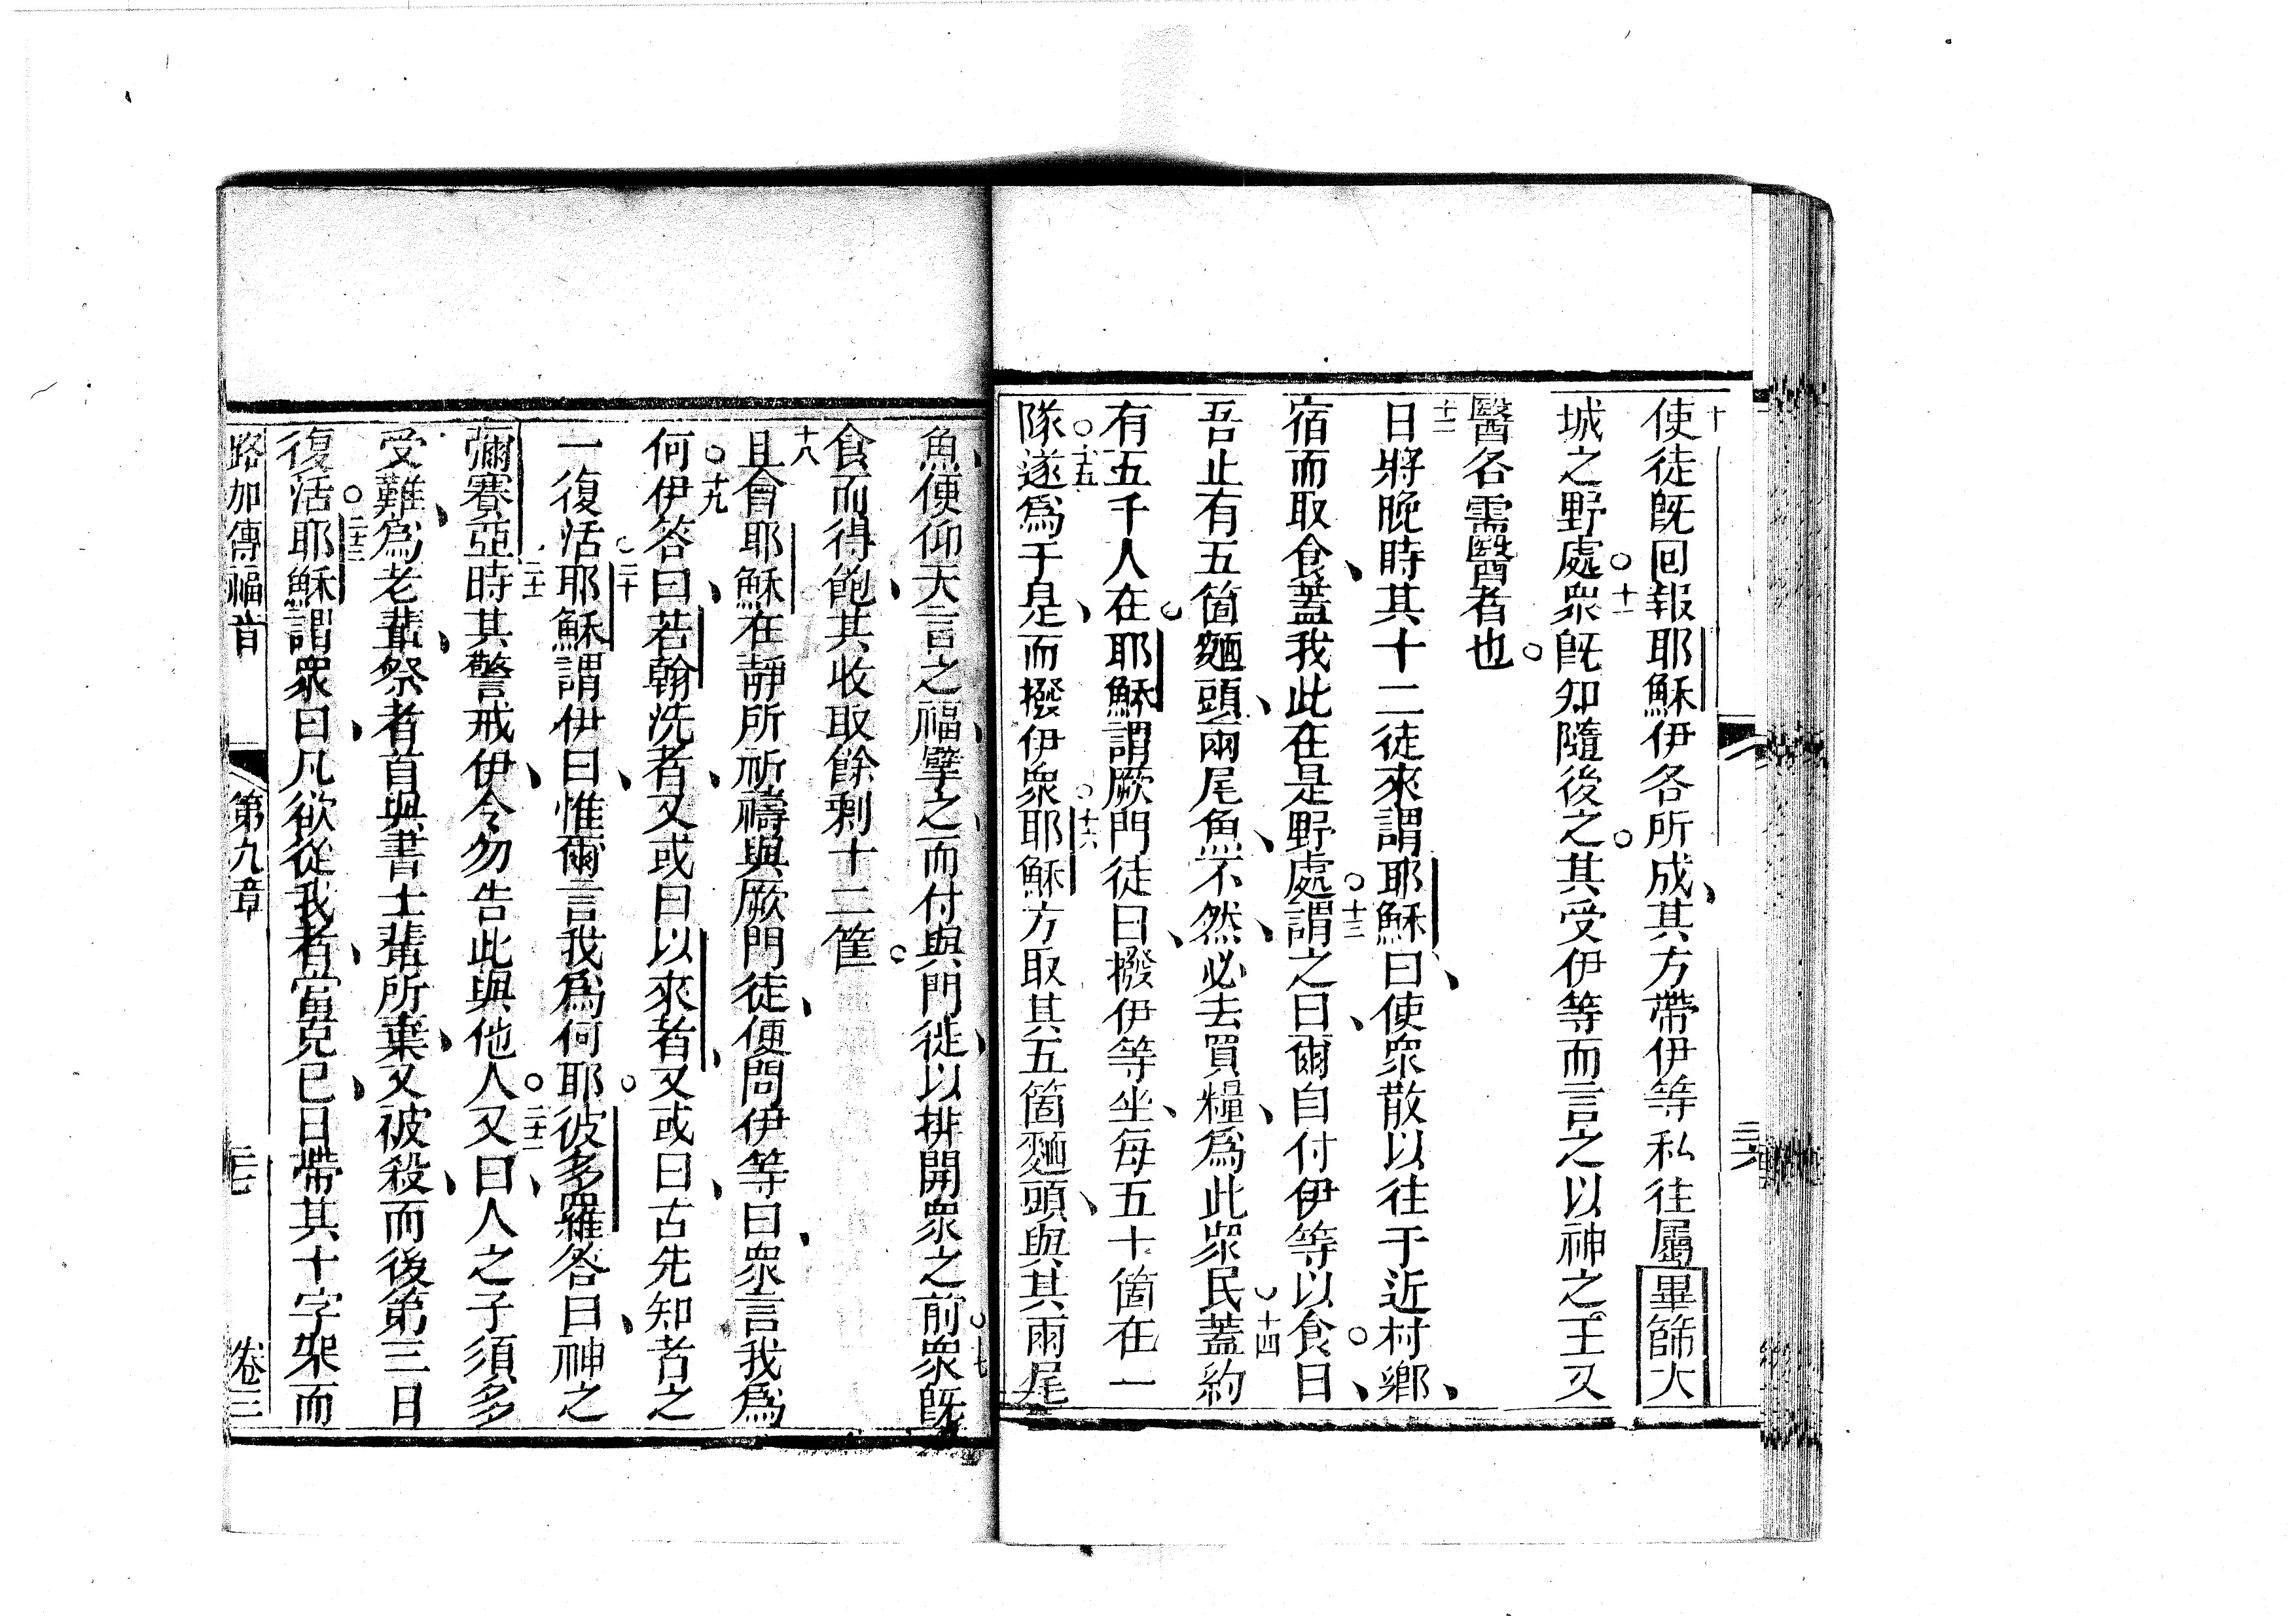 十使徒旣回報耶穌伊各所成、其方帶伊等私往屬畢篩大
城之野處。十一衆旣知隨後之。其受伊等而言之以神之王又
醫各需醫者也。
十二日將晚時其十二徒來謂耶穌曰、使衆散以往于近村鄉、
宿而取食、蓋我此在是野處。十三謂之曰、爾自付伊等以食。曰、
吾止有五箇麵頭、兩尾魚、不然、必去買糧、爲此衆民。十四蓋約
有五千人在。耶穌謂厥門徒曰、撥伊等坐、每五十箇在一
隊。十五遂爲于是、而撥伊衆。十六耶穌方取其五箇麵頭、與其兩尾
魚、便仰天言之福、擘之、而付與門徒、以排開衆之前。十七衆旣
食而得飽、其收取餘剩十二筐。
十八且會耶穌在靜所祈禱與厥門徒、便問伊等曰、衆言我爲
何。十九伊答曰、若翰洗者、又或曰以來者、又或曰、古先知者之
一復活。二十耶穌謂伊曰、惟爾言我爲何耶。彼多羅答曰、神之
彌賽亞。二十一時其警戒伊、令勿告此與他人。二十二又曰、人之子須多
受難、爲老輩、祭者首與書士輩所棄、又被殺、而後第三日
復活。二十三耶穌謂衆曰、凡欲從我者、當克己、日帶其十字架而
路加傳福音 第九章 二七 卷三